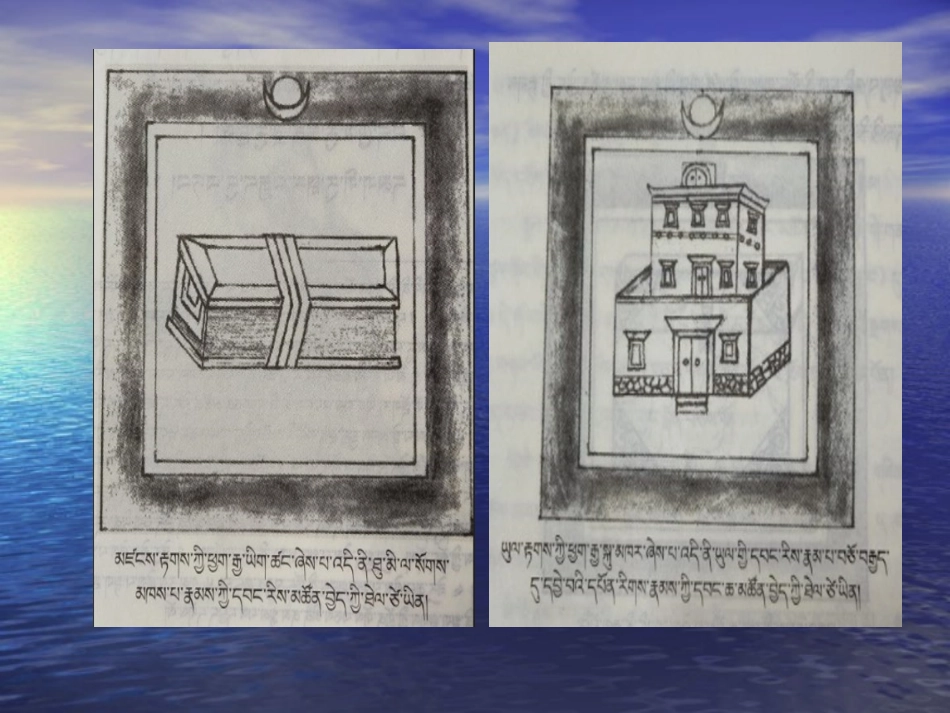 མཛངས་རྟགས་ཀྱི་ཕྱག་རྒྱ་ཡིག་ཚང་ཞེས་པ་འདི་ནི་ཐུ་མི་ལ་སོགས་
མཁས་པ་རྣམས་ཀྱི་དབང་རིས་མཚོན་བྱེད་ཀྱི་ཐེལ་ཙེ་ཡིན།
ཡུལ་རྟགས་ཀྱི་ཕྱག་རྒྱ་སྐུ་མཁར་ཞེས་པ་འདི་ནི་ཡུལ་གྱི་དབང་རིས་རྣམ་པ་བཅོ་བརྒྱད་
དུ་དབྱེ་བའི་དཔོན་རིགས་རྣམས་ཀྱི་དབང་ཆ་མཚོན་བྱེད་ཀྱི་ཐེལ་ཙེ་ཡིན།